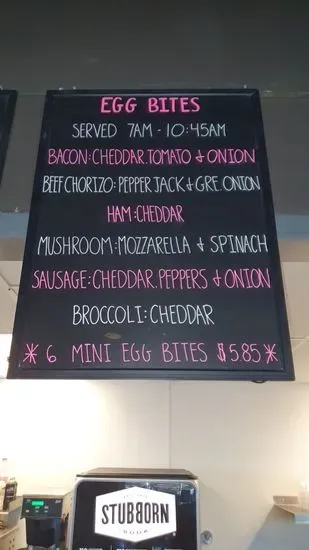 EGG BITES
SERVED 7AM - 10:45AM
BACON: CHEDDAR, TOMATO & ONION
BEEF CHORIZO: PEPPER JACK & GRE. ONION
HAM: CHEDDAR
MUSHROOM: MOZZARELLA & SPINACH
SAUSAGE: CHEDDAR, PEPPERS & ONION
BROCCOLI: CHEDDAR
* 6 MINI EGG BITES $5.85 *
STUBBORN
SODA